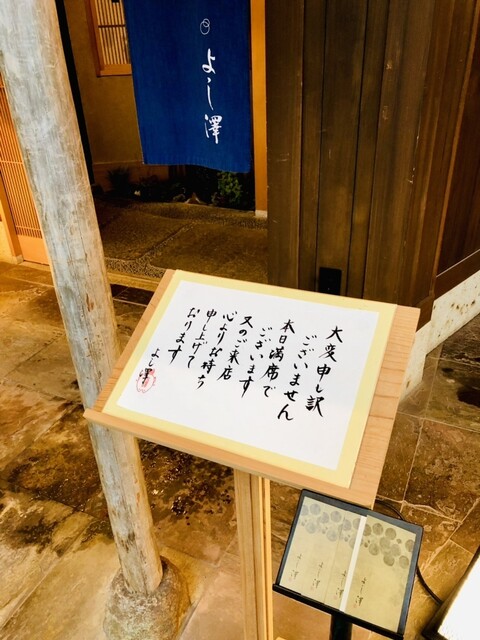 よし澤
大変申し訳
ございません
本日満席で
ございます
又のご来店
心よりお待ち
申し上げて
おります
よし澤
よし澤